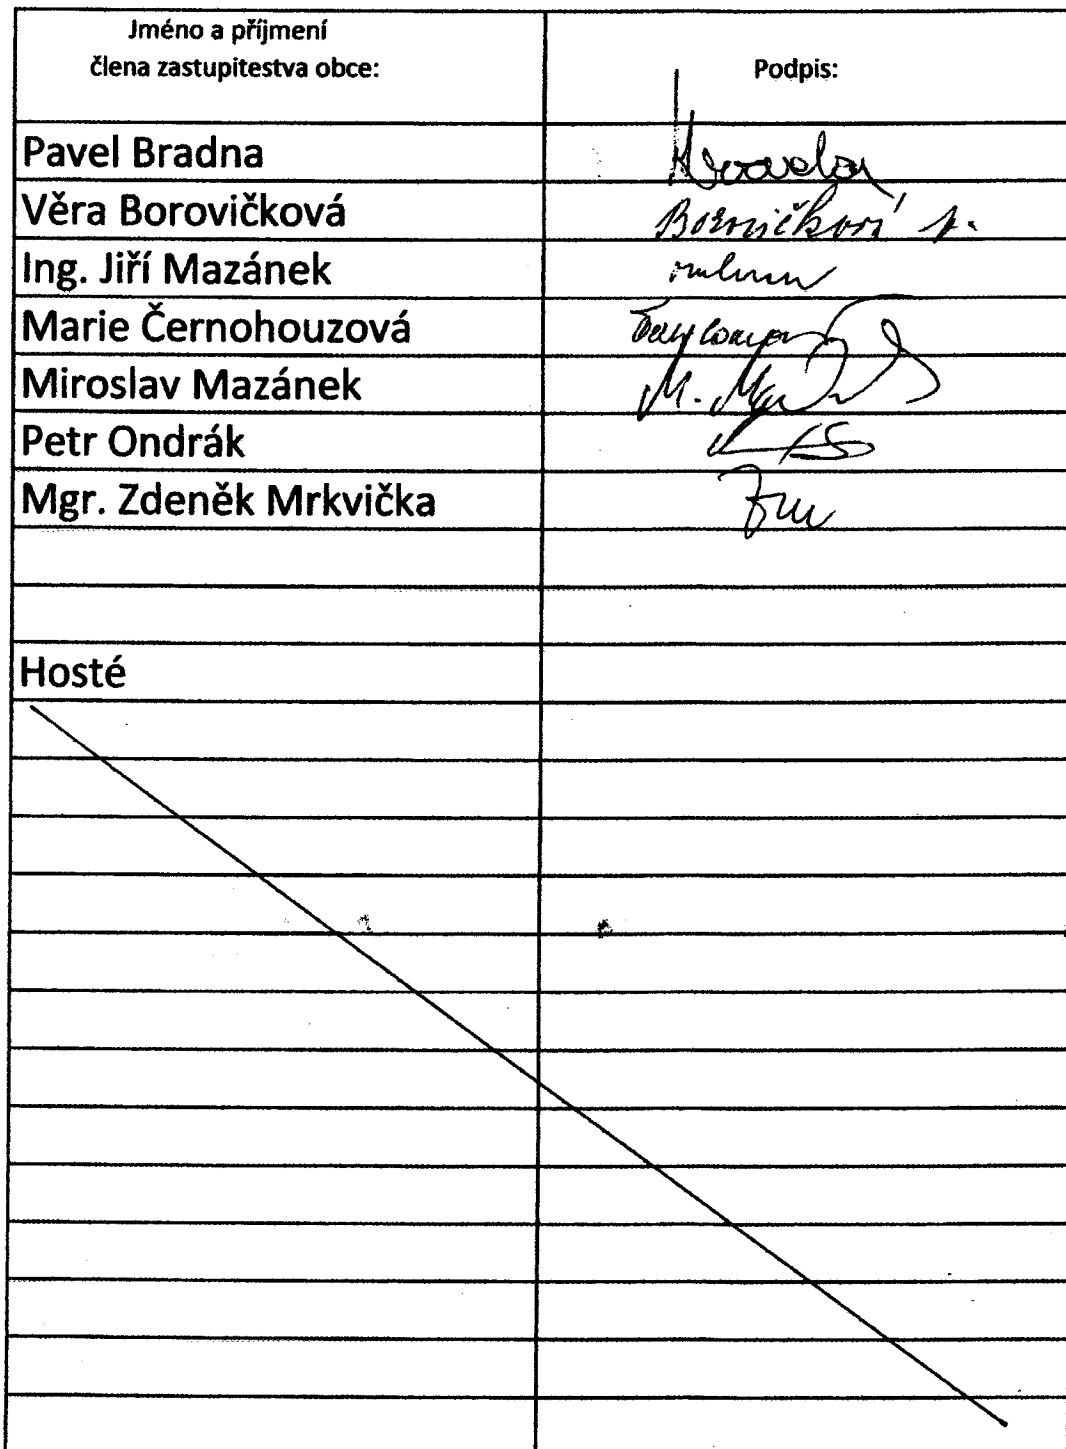 Jméno a příjmení
člena zastupitestva obce:
Podpis:
Pavel Bradna
Věra Borovičková
Borovičková
Ing. Jiří Mazánek
Marie Černohouzová
Miroslav Mazánek
M.
Petr Ondrák
Mgr. Zdeněk Mrkvička
Hosté